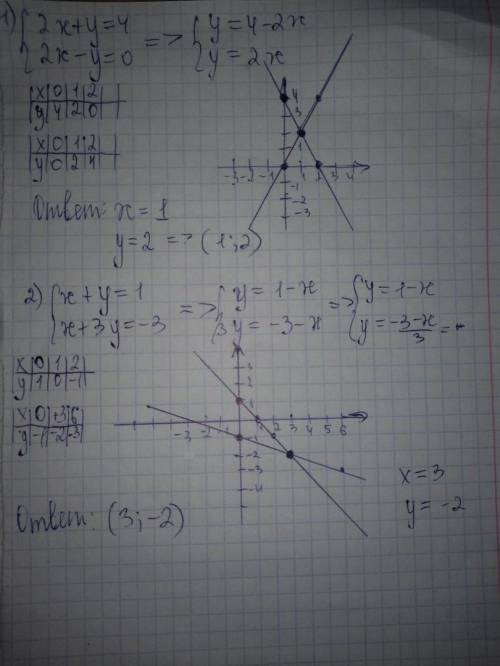 1) { 2x+y=4 => { y=4-2x
2x-y=0 y=2x
x 0 1 2
y 4 2 0
x 0 1 2
y 0 2 4
4
3
1
-3 -2 -1 1 3 4
-1
-2
-3
Ответ: x=1
y=2 => (1;2)
2) { x+y=1 => { y=1-x => { y=1-x
x+3y=-3 3y=-3-x y=-3-x/3 =
x 0 1 2
y 1 0 -1
x 0 3 6
y -1 -2 -3
3
2
1
-3 -2 2 3 4 5 6
-2
-3
-4
x=3
y=-2
Ответ: (3;-2)